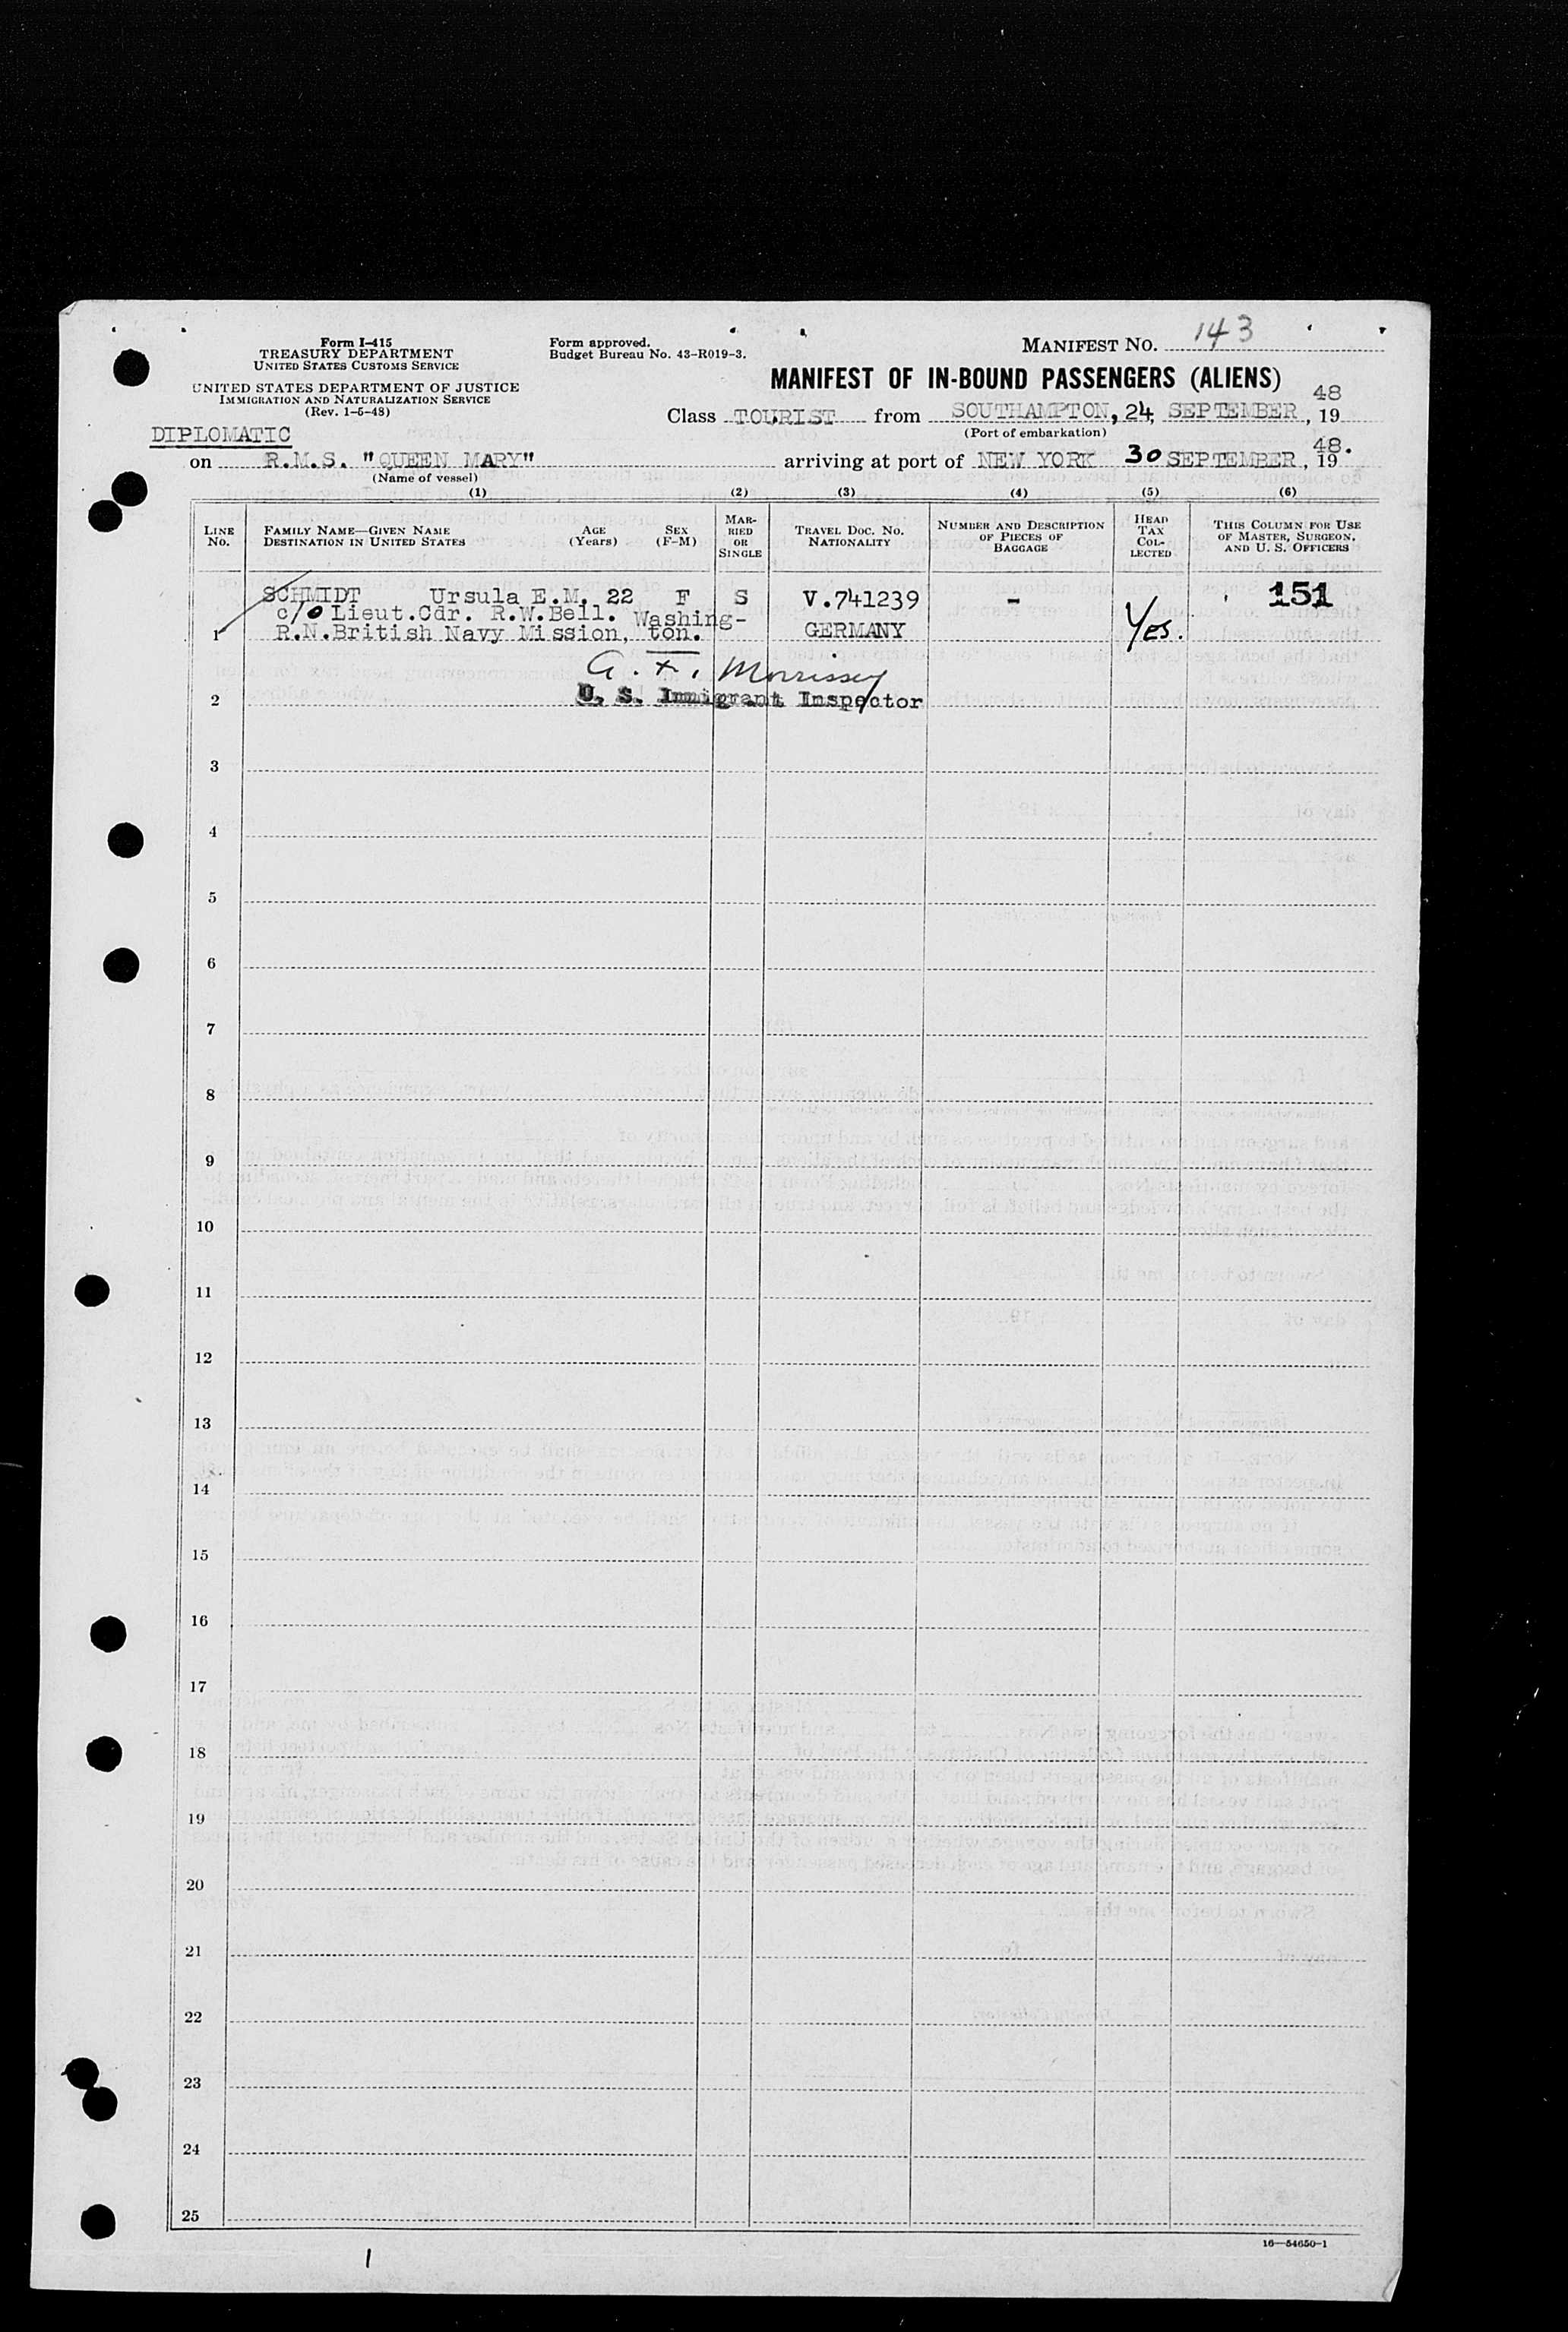 Form I-415
TREASURY DEPARTMENT
UNITED STATES CUSTOMS SERVICE
UNITED STATES DEPARTMENT OF JUSTICE
IMMIGRATION AND NATURALIZATION SERVICE
(Rev. 1-5-48)
Form approved.
Budget Bureau No. 43-R019-3.
MANIFEST No. 143
MANIFEST OF IN-BOUND PASSENGERS (ALIENS)
Class TOURIST from SOUTHAMPTON, 24, SEPTEMBER, 19 48
(Port of embarkation)
DIPLOMATIC
on R.M.S. "QUEEN MARY" arriving at port of NEW YORK 30 SEPTEMBER, 19 48.
(Name of vessel)
(1) (2) (3) (4) (5) (6)
LINE No.
FAMILY NAME—GIVEN NAME
DESTINATION IN UNITED STATES
AGE (Years)
SEX (F-M)
MARRIED OR SINGLE
TRAVEL DOC. NO. NATIONALITY
NUMBER AND DESCRIPTION OF PIECES OF BAGGAGE
HEAD TAX COLLECTED
THIS COLUMN FOR USE OF MASTER, SURGEON, AND U. S. OFFICERS
SCHMIDT Ursula E.M. 22 F S V.741239 - 151
c/o Lieut.Cdr. R.W.Bell. Washing-
1 R.N.British Navy Mission, ton. GERMANY Yes.
A. F. Morrissey
2 U. S. Immigrant Inspector
3
4
5
6
7
8
9
10
11
12
13
14
15
16
17
18
19
20
21
22
23
24
25
16—54650-1
1